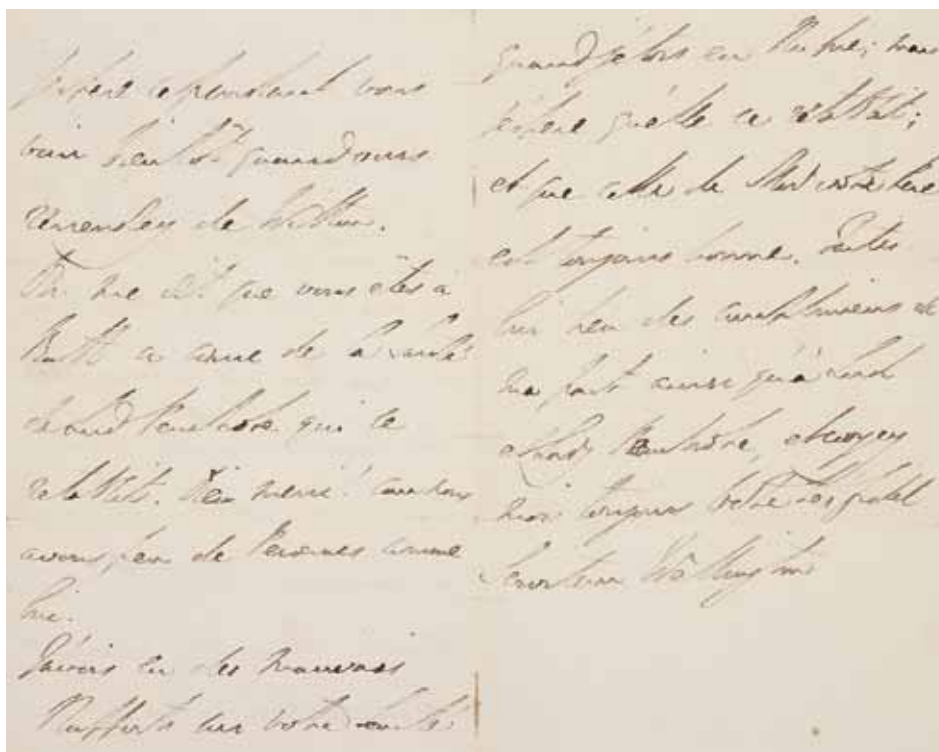 J'espere cependant vous
voir bientôt quand vous
reviendrez de Wilton.
On me dit que vous êtes à
Bath a cause de la santé
de Lord Pembroke qui se
retablit. Dieu merci! car nous
avons peu de Personnes comme
lui.
J'avois eu des mauvais
Rapports sur votre santé
quand j'etois en Russie; mais
j'espere qu'elle se retablit;
et que celle de votre Pere
est toujours bonne. Faites
lui bien des complimens de
ma part ainsi qu'à Lord
et Lady Pembroke, et croyez
moi toujours Votre très fidel
Serviteur Wellington